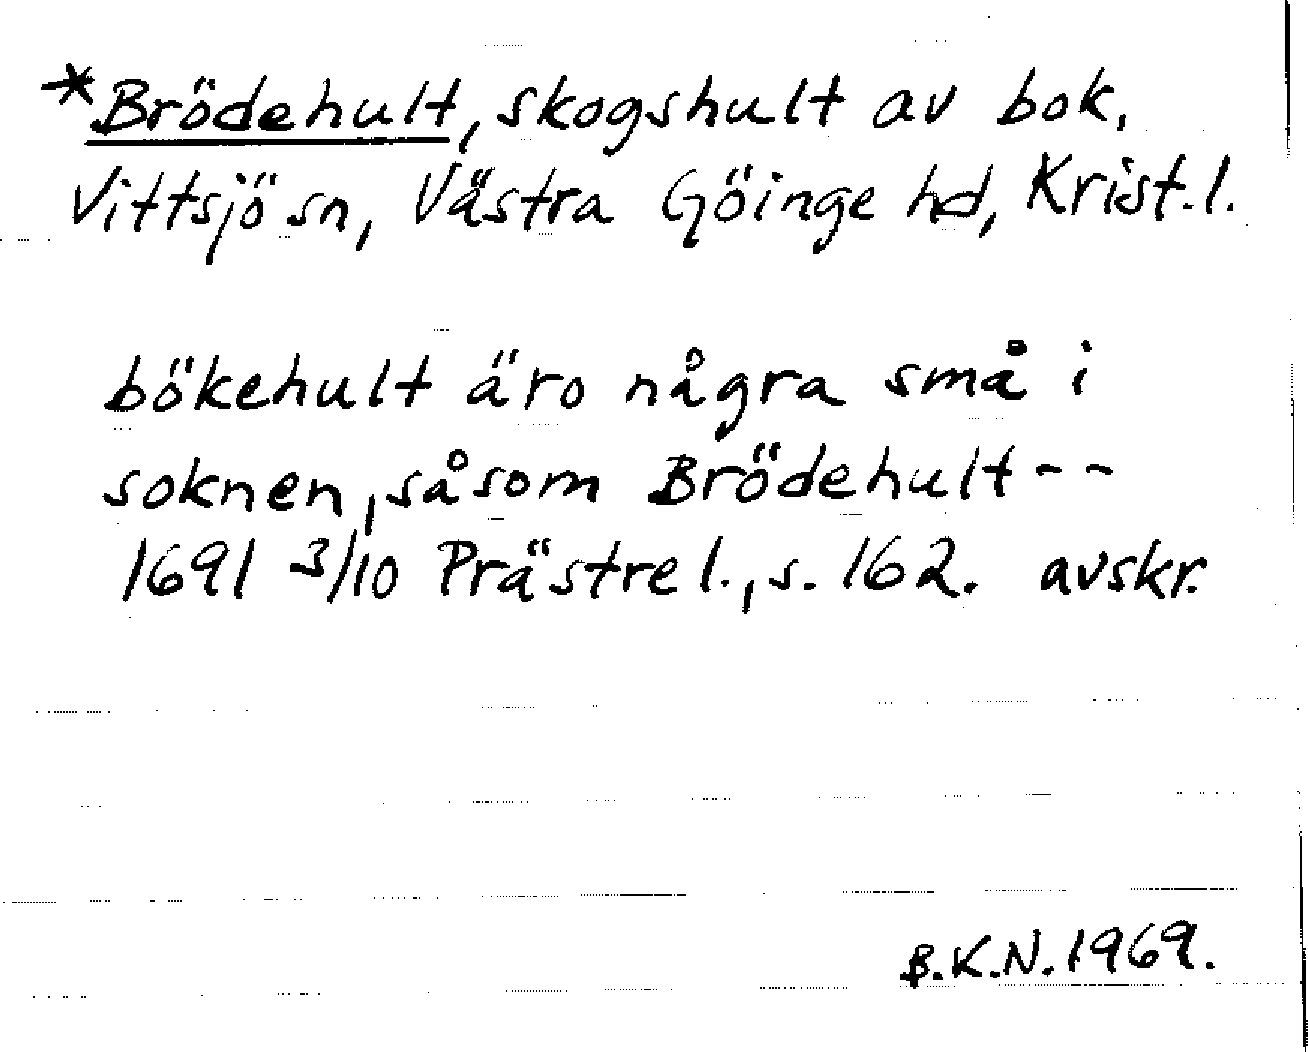 *Brödehult, skogshult av bok,
Vittsjö sn, Västra Göinge hd, Krist.l.
bökehult äro några små i
soknen, såsom Brödehult--
1691 3/10 Prästrel., s. 162. avskr.
B.K.N. 1969.